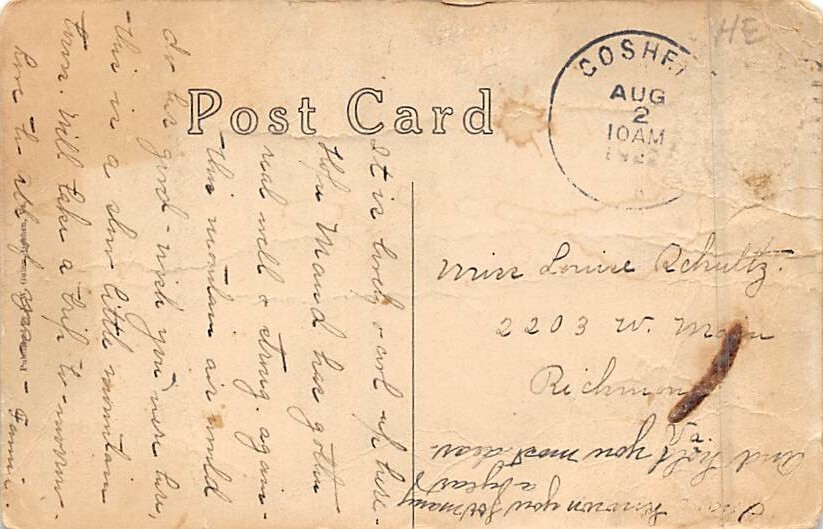 Post Card
GOSHE
AUG
2
10AM
HE
Miss Louise Schultz.
2203 W. Main
Richmon
Va.
It is lovely & cool up here -
Hope Maud has gotten
real well & strong again -
This mountain air would
do her good - wish you were here,
This is a slow little mountain
town. Will take a trip to-morrow -
Love to all of you - Fannie.
known you for many
a year &
And hold you most dear